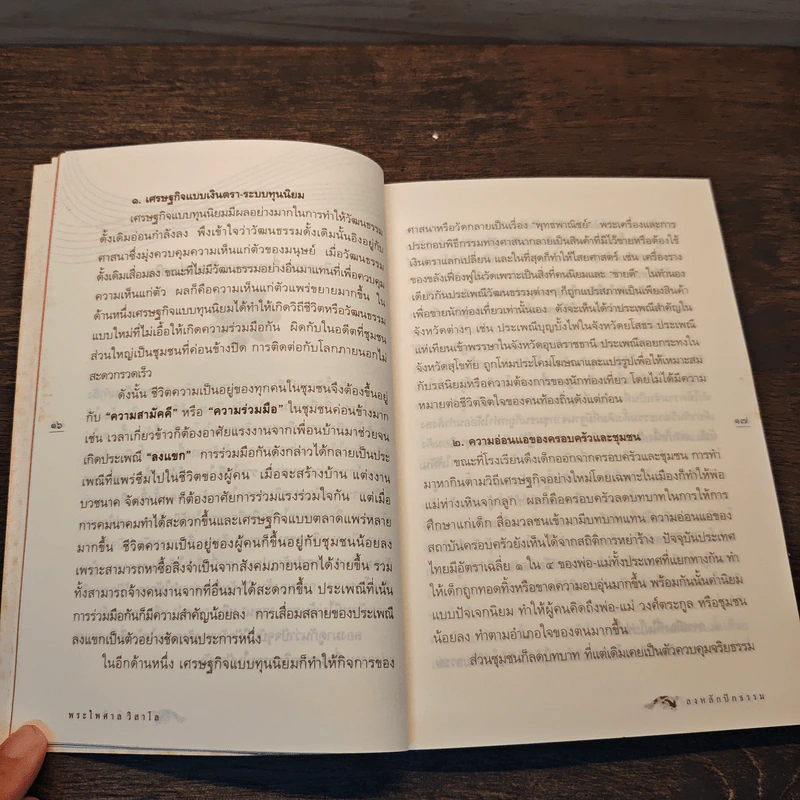 ๑. เศรษฐกิจแบบเงินตรา-ระบบทุนนิยม
เศรษฐกิจแบบทุนนิยมมีผลอย่างมากในการทำให้วัฒนธรรม
ดั้งเดิมอ่อนกำลังลง พึงเข้าใจว่าวัฒนธรรมดั้งเดิมนั้นอิงอยู่กับ
ศาสนาซึ่งมุ่งควบคุมความเห็นแก่ตัวของมนุษย์ เมื่อวัฒนธรรม
ดั้งเดิมเสื่อมลง ขณะที่ไม่มีวัฒนธรรมอย่างอื่นมาแทนที่เพื่อควบคุม
ความเห็นแก่ตัว ผลก็คือความเห็นแก่ตัวแพร่ขยายมากขึ้น ใน
ด้านหนึ่งเศรษฐกิจแบบทุนนิยมได้ทำให้เกิดวิถีชีวิตหรือวัฒนธรรม
แบบใหม่ที่ไม่เอื้อให้เกิดความร่วมมือกัน ผิดกับในอดีตที่ชุมชน
ส่วนใหญ่เป็นชุมชนที่ค่อนข้างปิด การติดต่อกับโลกภายนอกไม่
สะดวกรวดเร็ว
ดังนั้น ชีวิตความเป็นอยู่ของทุกคนในชุมชนจึงต้องขึ้นอยู่
กับ “ความสามัคคี” หรือ “ความร่วมมือ” ในชุมชนค่อนข้างมาก
เช่น เวลาเกี่ยวข้าวก็ต้องอาศัยแรงงานจากเพื่อนบ้านมาช่วยจน
เกิดประเพณี “ลงแขก” การร่วมมือกันดังกล่าวได้กลายเป็นประ
เพณีที่แพร่ซึมไปในชีวิตของผู้คน เมื่อจะสร้างบ้าน แต่งงาน
บวชนาค จัดงานศพ ก็ต้องอาศัยการร่วมแรงร่วมใจกัน แต่เมื่อ
การคมนาคมทำได้สะดวกขึ้นและเศรษฐกิจแบบตลาดแพร่หลาย
มากขึ้น ชีวิตความเป็นอยู่ของผู้คนก็ขึ้นอยู่กับชุมชนน้อยลง
เพราะสามารถหาซื้อสิ่งจำเป็นจากสังคมภายนอกได้ง่ายขึ้น รวม
ทั้งสามารถจ้างคนงานจากที่อื่นมาได้สะดวกขึ้น ประเพณีที่เน้น
การร่วมมือกันก็มีความสำคัญน้อยลง การเสื่อมสลายของประเพณี
ลงแขกเป็นตัวอย่างชัดเจนประการหนึ่ง
ในอีกด้านหนึ่ง เศรษฐกิจแบบทุนนิยมก็ทำให้กิจการของ
๑๖
พระไพศาล วิสาโล
ศาสนาหรือวัดกลายเป็นเรื่อง “พุทธพาณิชย์” พระเครื่องและการ
ประกอบพิธีกรรมทางศาสนากลายเป็นสินค้าที่มีไว้ขายหรือต้องใช้
เงินตราแลกเปลี่ยน และในที่สุดก็ทำให้ไสยศาสตร์ เช่น เครื่องราง
ของขลังเฟื่องฟูในวัดเพราะเป็นสิ่งที่คนนิยมและ “ขายดี” ในทำนอง
เดียวกันประเพณีวัฒนธรรมต่างๆ ก็ถูกแปรสภาพเป็นเพียงสินค้า
เพื่อขายนักท่องเที่ยวเท่านั้นเอง ดังจะเห็นได้ว่าประเพณีสำคัญใน
จังหวัดต่างๆ เช่น ประเพณีบุญบั้งไฟในจังหวัดยโสธร ประเพณี
แห่เทียนเข้าพรรษาในจังหวัดอุบลราชธานี ประเพณีลอยกระทงใน
จังหวัดสุโขทัย ถูกโหมประโคมโฆษณาและแปรรูปเพื่อให้เหมาะสม
กับรสนิยมหรือความต้องการของนักท่องเที่ยว โดยไม่ได้มีความ
หมายต่อชีวิตจิตใจของคนท้องถิ่นดังแต่ก่อน
๒. ความอ่อนแอของครอบครัวและชุมชน
ขณะที่โรงเรียนดึงเด็กออกจากครอบครัวและชุมชน การทำ
มาหากินตามวิถีเศรษฐกิจอย่างใหม่โดยเฉพาะในเมืองก็ทำให้พ่อ
แม่ห่างเหินจากลูก ผลก็คือครอบครัวลดบทบาทในการให้การ
ศึกษาแก่เด็ก สื่อมวลชนเข้ามามีบทบาทแทน ความอ่อนแอของ
สถาบันครอบครัวยังเห็นได้จากสถิติการหย่าร้าง ปัจจุบันประเทศ
ไทยมีอัตราเฉลี่ย ๑ ใน ๔ ของพ่อ-แม่ทั้งประเทศที่แยกทางกัน ทำ
ให้เด็กถูกทอดทิ้งหรือขาดความอบอุ่นมากขึ้น พร้อมกันนั้นค่านิยม
แบบปัจเจกนิยม ทำให้ผู้คนคิดถึงพ่อ-แม่ วงศ์ตระกูล หรือชุมชน
น้อยลง ทำตามอำเภอใจของตนมากขึ้น
ส่วนชุมชนก็ลดบทบาท ที่แต่เดิมเคยเป็นตัวควบคุมจริยธรรม
๑๗
ลงหลักปักธรรม